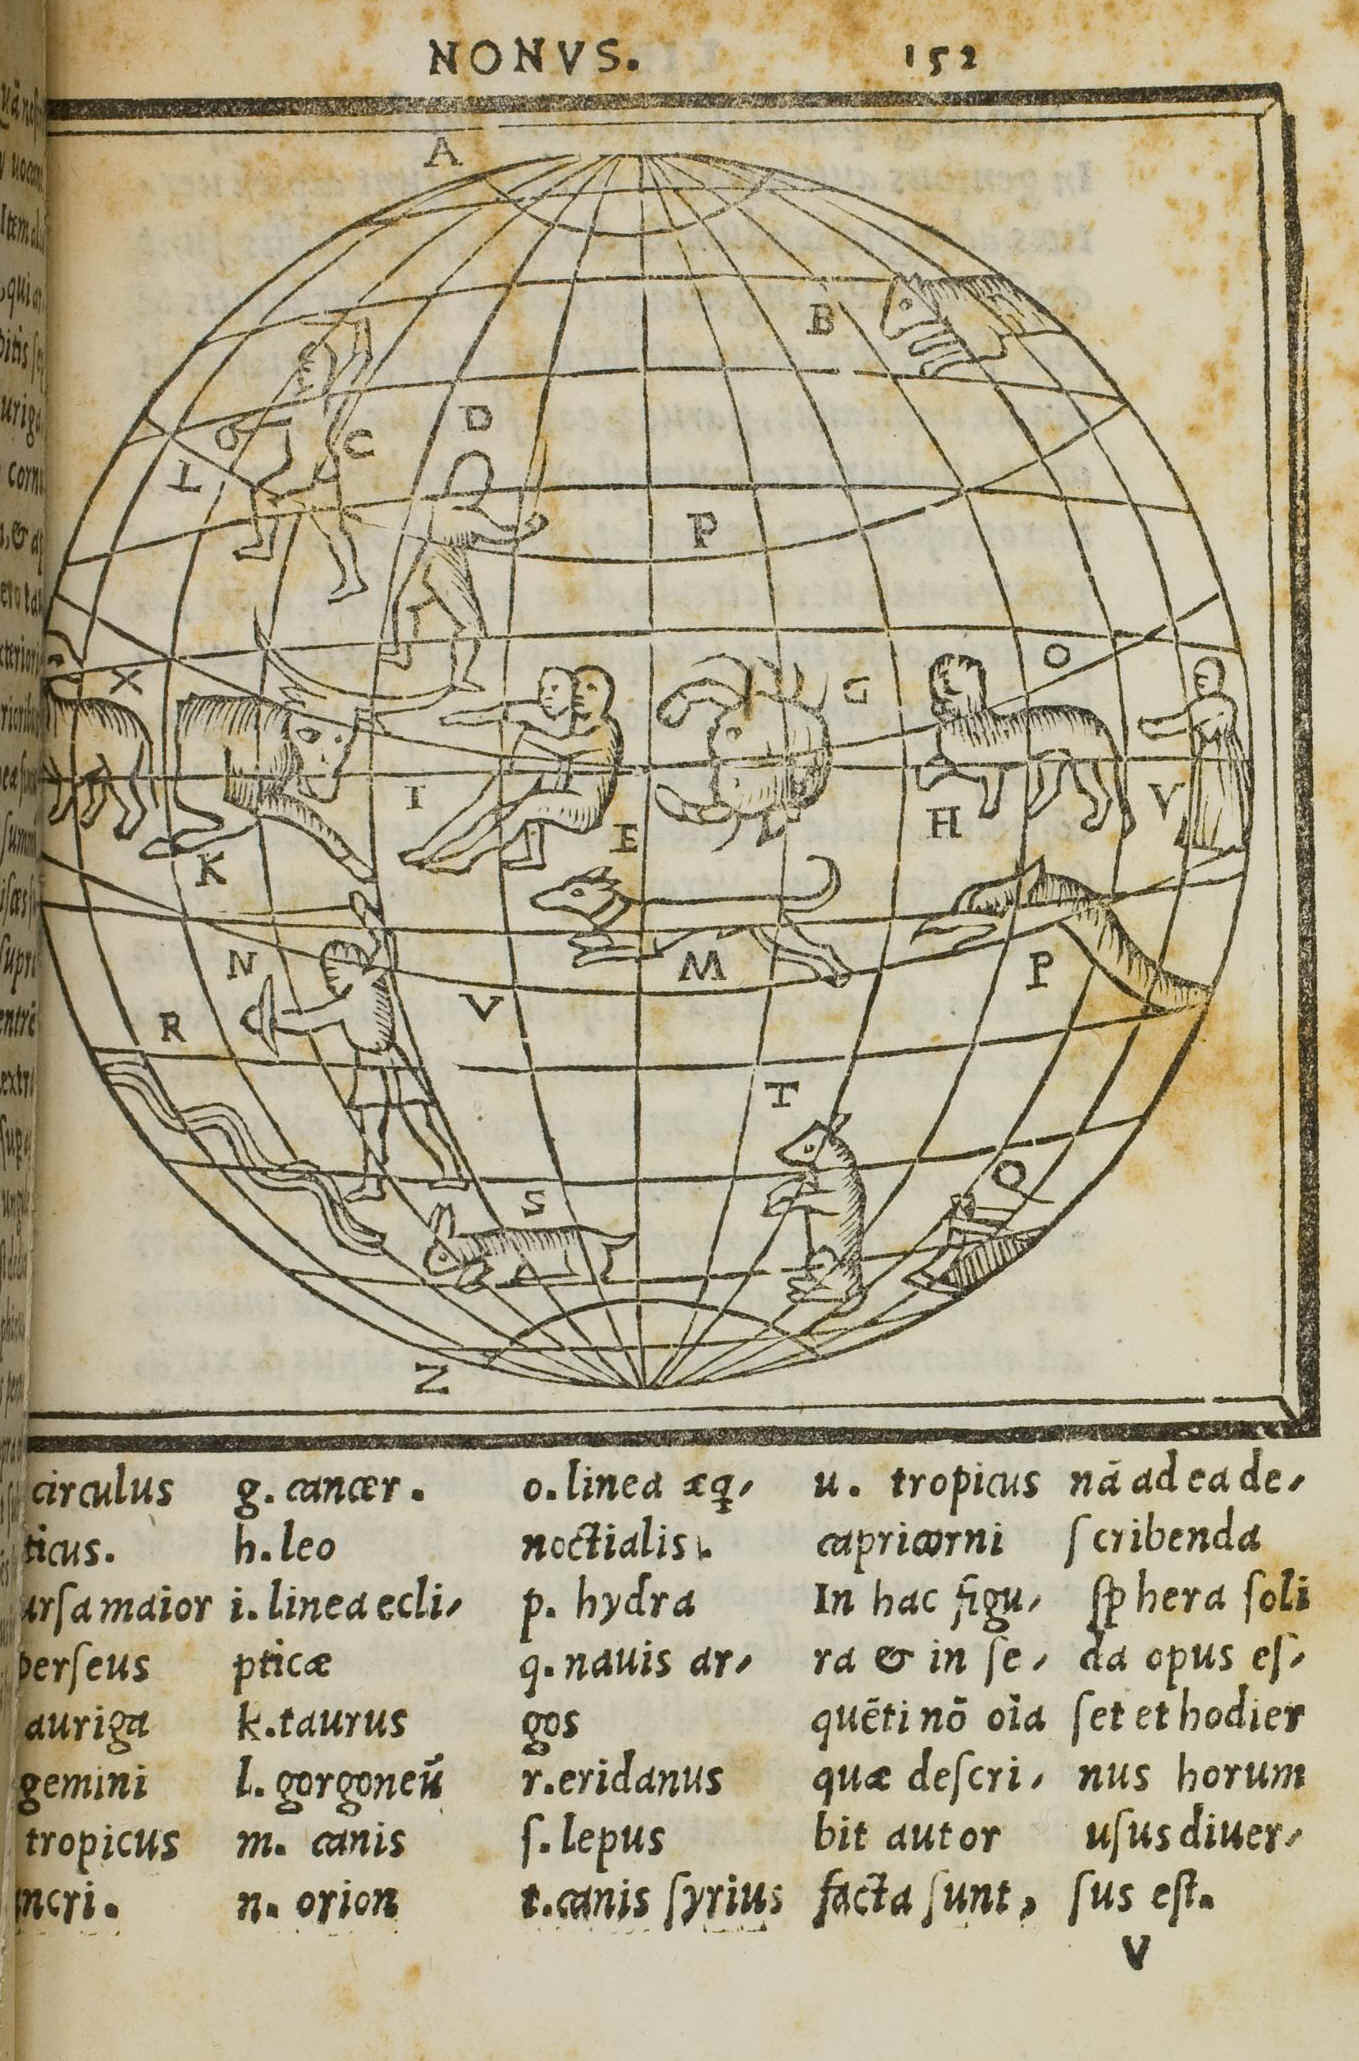 NONVS. 152
A
B
D
C
L
P
O
X
G
I
H
V
E
K
N
M
P
V
R
T
O
S
Z
circulus
ticus.
ursa maior
perseus
auriga
gemini
tropicus
ncri.
g. cancer.
h. leo
i. linea ecli,
pticæ
k. taurus
l. gorgoneũ
m. canis
n. orion
o. linea æq̃,
noctialis.
p. hydra
q. nauis ar,
gos
r. eridanus
ſ. lepus
t. canis ſyrius
u. tropicus
capricorni
In hac figu,
ra & in ſe,
quẽti nõ oĩa
quæ deſcri,
bit autor
facta ſunt,
nã ad ea de,
ſcribenda
ſphera ſoli
da opus eſ,
ſet et hodier
nus horum
uſus diuer,
ſus eſt.
V